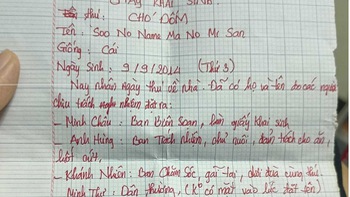 GIẤY KHAI SINH
thú: CHÓ ĐỐM
Tên: Sao No Name Ma No Mi San
Giống: Cái
Ngày Sinh: 9/9/2014 (Thứ 3)
Nay nhân ngày thú về nhà. Đã có họ và tên do các người
chịu trách nghiệm đặt ra:
- Minh Châu: Ban Biên Soạn, bán quấy khai sinh
- Anh Hùng: Ban Trách nhiệm, chủ nuôi, dẫn trách cho ăn,
hốt cứt,
- Khánh Nhân: Ban Chăm Sóc, gãi tai, chơi đùa cùng thú.
Minh Thư: Dân thường, (Ko có mặt vào lúc đặt tên)